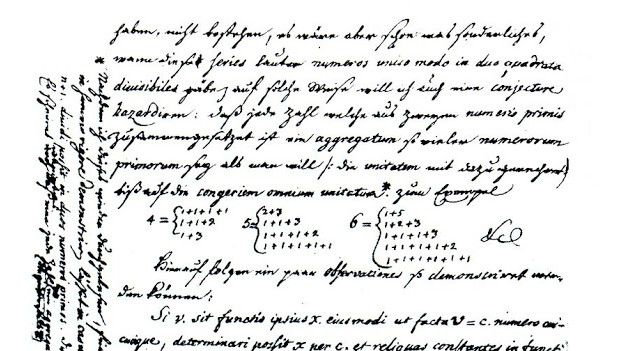 haben, nicht bestehen, es wäre aber schon was sonderliches,
wann diese series lauter numeros unico modo in duo quadrata
divisibiles gäbe auf solche Weise will ich auch eine conjecture
hazardiren: daß jede Zahl welche aus zweyen numeris primis
zusammengesetzet ist ein aggregatum so vieler numerorum
primorum sey als man will /: die unitatem mit dazu gerechnet
biß auf die congeriem omnium unitatum * zum Exempel
4 = { 1+1+1+1
1+1+2
1+3
5 = { 2+3
1+1+3
1+1+1+2
1+1+1+1+1
6 = { 1+5
1+2+3
1+1+1+3
1+1+1+1+2
1+1+1+1+1+1
&c
Hierauf folgen ein paar observationes so demonstriret wer-
den können:
Si v. sit functio ipsius x. eiusmodi ut facta v = c. numero cui-
cunque, determinari possit x per c. et reliquas constantes in functi
* Nachdem ich dieses wieder durchgelesen, finde
in summo rigore demonstriren lässet in casu
nei dividi possit in duos numeros primos. Di
Es scheinet eine jede